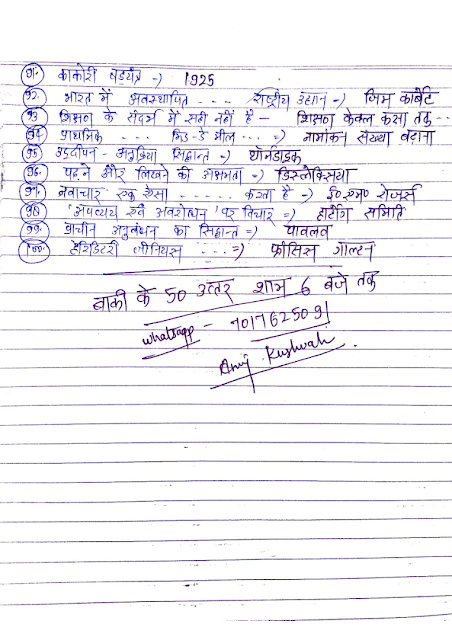 91. काकोरी षडयंत्र -> 1925
92. भारत में अवस्थापित .... राष्ट्रीय उद्यान -> जिम कार्बेट
93 शिक्षण के संदर्भ में सही नहीं है - शिक्षण केवल कक्षा तक ..
94. प्राथमिक ... मिड-डे मील ... => नामांकन संख्या बढ़ाना
95. उद्दीपन - अनुक्रिया सिद्धान्त -> थॉर्नडाइक
96. पढ़ने और लिखने की अक्षमता -> डिस्लेक्सिया
97. नवाचार एक ऐसा ...... करता है -> ई० एम० रोजर्स
98 'अपव्यय एवं अवरोधन' पर विचार => हार्टोग समिति
99. प्राचीन अनुबंधन का सिद्धान्त => पावलव
100. हेरिडिटरी जीनियस .... => फ्रांसिस गाल्टन
बाकी के 50 उत्तर शाम 6 बजे तक
whatsapp - 7017625091
Anuj Kushwah.